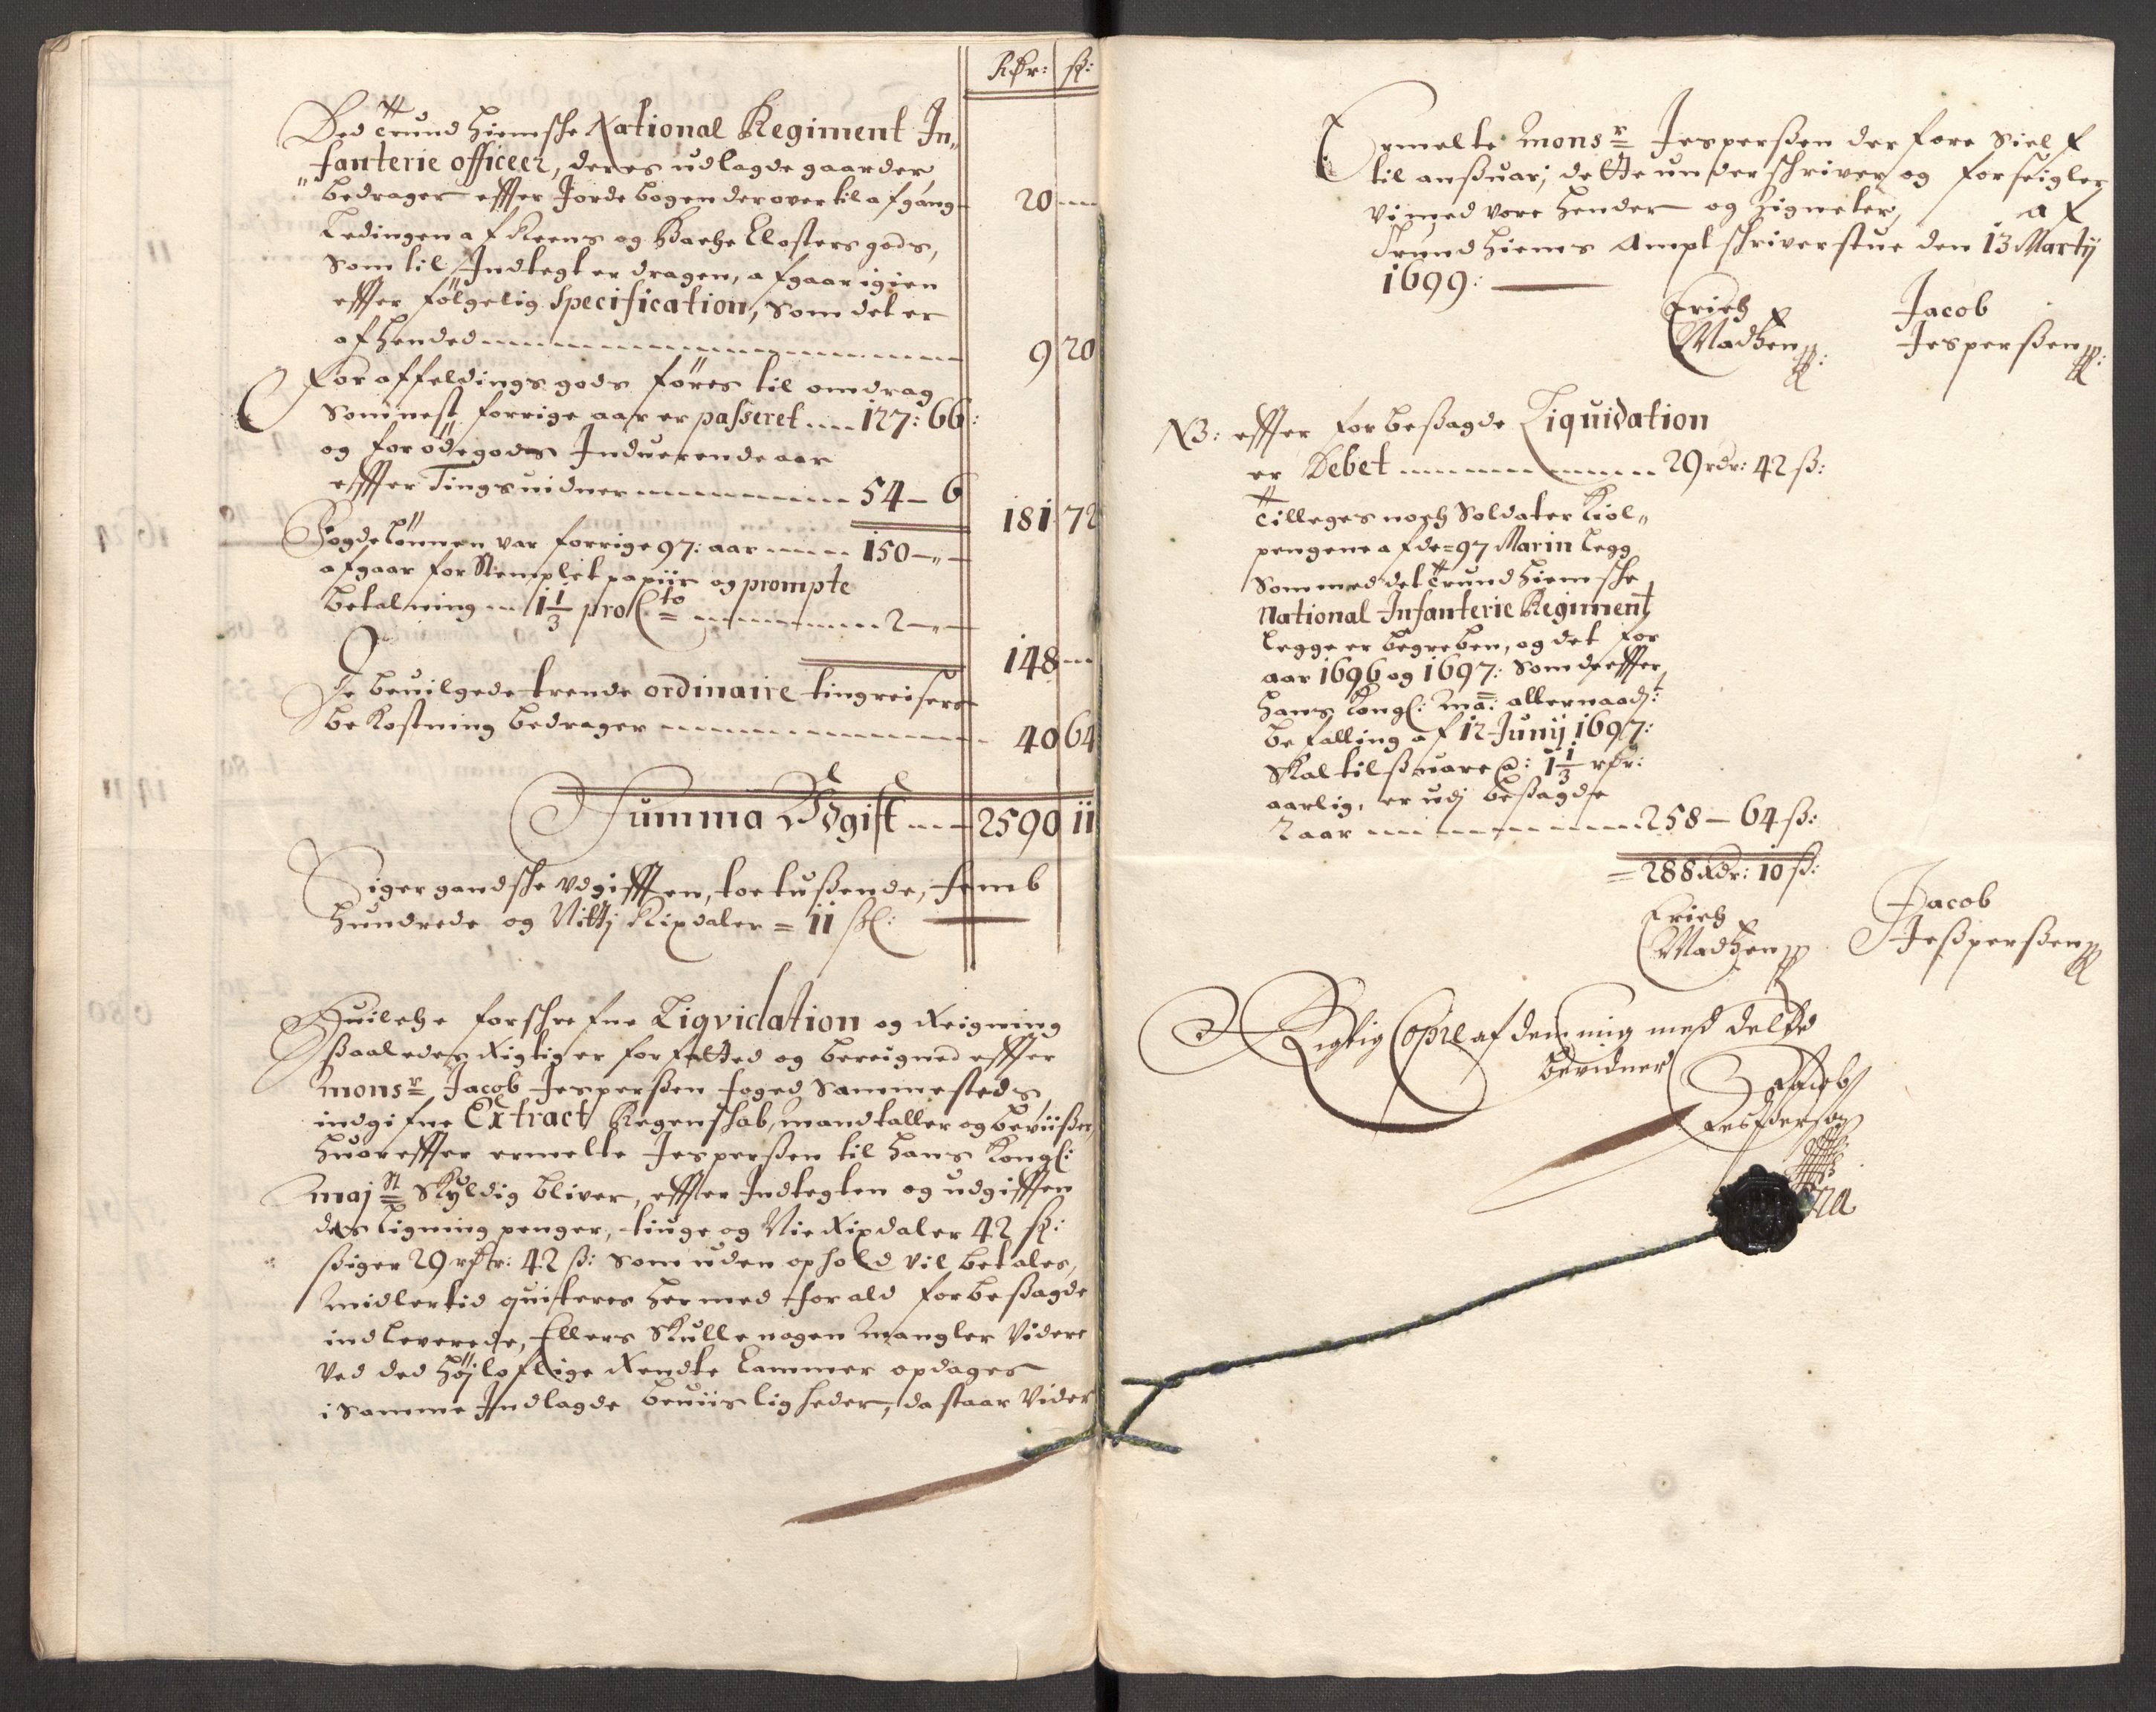 Rdr: ß:
Ded Trundhiemske National Regiment In„
fanterie officeer, deres udlagde gaarder,
bedrager effter Jordebogen derover til afgang 20 —
Ledingen af Reens og Bache Closters gods,
Som til Indtegt er dragen, afgaar igien
effter følgelig Specification, Som det er
afhended 9 20
For affeldings gods føres til omdrag
Som nest forrige aar er passeret 127: 66:
og for ödegods Induerende aar
effter Tingsuidner 54 – 6
181 72
Fogdelönnen var forrige 97: aar 150 –„–
afgaar for Stemplet papiir og prompte
betalning 1 1/3 pro Cto 2 –„–
148 —
De beuilgede trende ordinaire tingreisers
bekostning bedrager 40 64
Summa Udgift 2590 11
Siger gandske udgifften, toe tußende, femb
hundrede og Nittj Rixdaler = 11 ß:
Huilche forschrefne Liqvidation og Reigning
ßaaledes Rigtig er forfatted og beregned effter
Monsr Jacob Jesperßen foged Sammesteds,
indgifne Extract Regenskab, mandtaller og beviißer,
huoreffter ermelte Jesperßen til Hans Kongl:
Majst Skyldig bliver, effter Indtegten og udgifften
des ligning penger, tiuge og Nie Rixdaler 42 ß:
ßiger 29 rdr: 42 ß: Som uden ophold vil betales,
Midlertid quiteres hermed for ald forbeßagde
indleverede, Ellers Skulle nogen Mangler Videre
Ved ded Höjloflige Rendte Cammer opdages
i Samme Indlagde beviisligheder, da staar Vider
Ermelte Monsr Jesperßen derfore Sielf
til anßuar; dette underschriver og forseigler
vi med vore hender og Zigneter, af
Trundhiems Amptschriverstue den 13 Martij
1699:
Erich Jacob
Madtzen Jesperßen
NB: effter forbeßagde Liquidation
er Debet 29 rdr: 42 ß:
Tilleges noch Soldater Kiol„
pengene af de = 97 Marin legg
Som med det Trundhiemske
National Infanterie Regiment
legge er begreben, og det for
aar 1696 og 1697: Som de effter
Hans Kongl: Ma: allernaad:
befalling af 12 Junij 1697:
Skal tilßuare a: 1 1/3 rdr:
aarlig, er udj beßagde
2 aar 258 – 64 ß:
= 288 Rdr: 10 ß:
Erich Jacob
Madtzen Jeßperßen
Rigtig Copie af
bevidner
Jacob